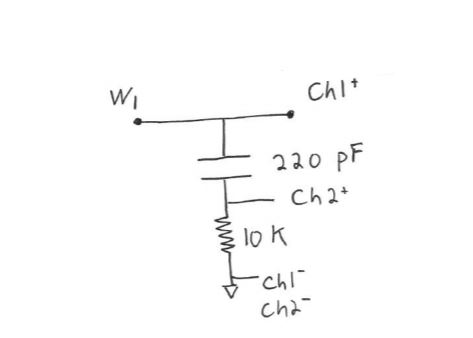 W1
Ch1+
220 pF
Ch2+
10K
Ch1-
Ch2-